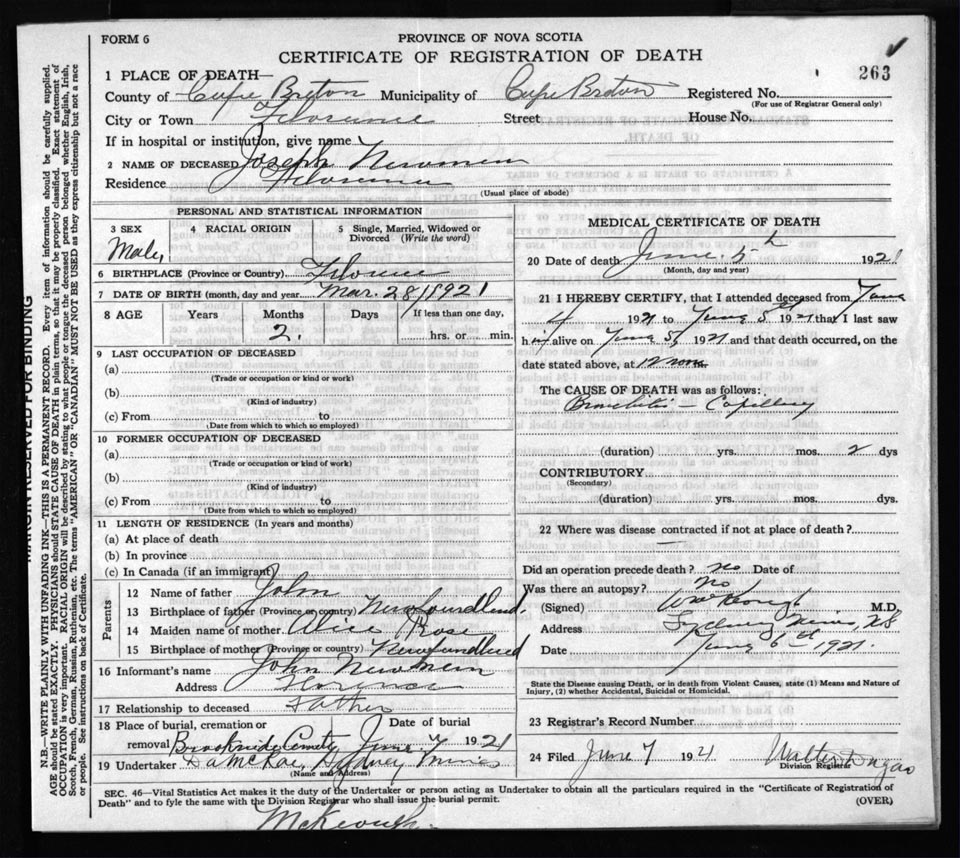 FORM 6
PROVINCE OF NOVA SCOTIA
CERTIFICATE OF REGISTRATION OF DEATH
263
1 PLACE OF DEATH—
County of Cape Breton Municipality of Cape Breton Registered No.
(For use of Registrar General only)
City or Town Florence Street House No.
If in hospital or institution, give name
2 NAME OF DECEASED Joseph Newman
Residence Florence
(Usual place of abode)
PERSONAL AND STATISTICAL INFORMATION
3 SEX Male
4 RACIAL ORIGIN
5 Single, Married, Widowed or Divorced (Write the word)
6 BIRTHPLACE (Province or Country) Florence
7 DATE OF BIRTH (month, day and year) Mar. 28/1921
8 AGE Years Months 2. Days If less than one day, hrs. or min.
9 LAST OCCUPATION OF DECEASED
(a)
(Trade or occupation or kind or work)
(b)
(Kind of industry)
(c) From to
(Date from which to which so employed)
10 FORMER OCCUPATION OF DECEASED
(a)
(Trade or occupation or kind of work)
(b)
(Kind of industry)
(c) From to
(Date from which to which so employed)
11 LENGTH OF RESIDENCE (In years and months)
(a) At place of death
(b) In province
(c) In Canada (if an immigrant)
Parents
12 Name of father John
13 Birthplace of father (Province or country) Newfoundland.
14 Maiden name of mother Alice Rose
15 Birthplace of mother (Province or country) Newfundland
16 Informant's name John Newman
Address Florence
17 Relationship to deceased Father
18 Place of burial, cremation or removal Brookside Cemety Date of burial June 7 1921
19 Undertaker D A McRae, Sydney Mines
(Name and Address)
MEDICAL CERTIFICATE OF DEATH
20 Date of death June 5th 1921
(Month, day and year)
21 I HEREBY CERTIFY, that I attended deceased from June
4 1921 to June 5th 1921 that I last saw
him alive on June 5th 1921 and that death occurred, on the
date stated above, at 12 noon
The CAUSE OF DEATH was as follows:
Bronchitis — Capillary
(duration) yrs. mos. 2 dys
CONTRIBUTORY
(Secondary)
(duration) yrs. mos. dys.
22 Where was disease contracted if not at place of death?
—
Did an operation precede death? no Date of
Was there an autopsy? No
(Signed) M.D.
Address Sydney Mines, N S
Date June 6th 1921.
State the Disease causing Death, or in death from Violent Causes, state (1) Means and Nature of Injury, (2) whether Accidental, Suicidal or Homicidal.
23 Registrar's Record Number
24 Filed June 7 1921 Walter Dugas
Division Registrar
SEC. 46—Vital Statistics Act makes it the duty of the Undertaker or person acting as Undertaker to obtain all the particulars required in the "Certificate of Registration of
Death" and to fyle the same with the Division Registrar who shall issue the burial permit.
(OVER)
McKeough
MARGIN RESERVED FOR BINDING
N.B.—WRITE PLAINLY WITH UNFADING INK—THIS IS A PERMANENT RECORD. Every item of information should be carefully supplied.
AGE should be stated EXACTLY. PHYSICIANS should STATE CAUSE OF DEATH in plain terms, so that it may be properly classified. Exact statement of
OCCUPATION is very important. RACIAL ORIGIN will be described by stating to what people or tongue the deceased person belonged, whether English, Irish,
Scotch, French, German, Russian, Ruthenian, etc. The terms "AMERICAN" OR "CANADIAN" MUST NOT BE USED as they express citizenship but not a race
or people. See instructions on back of Certificate.